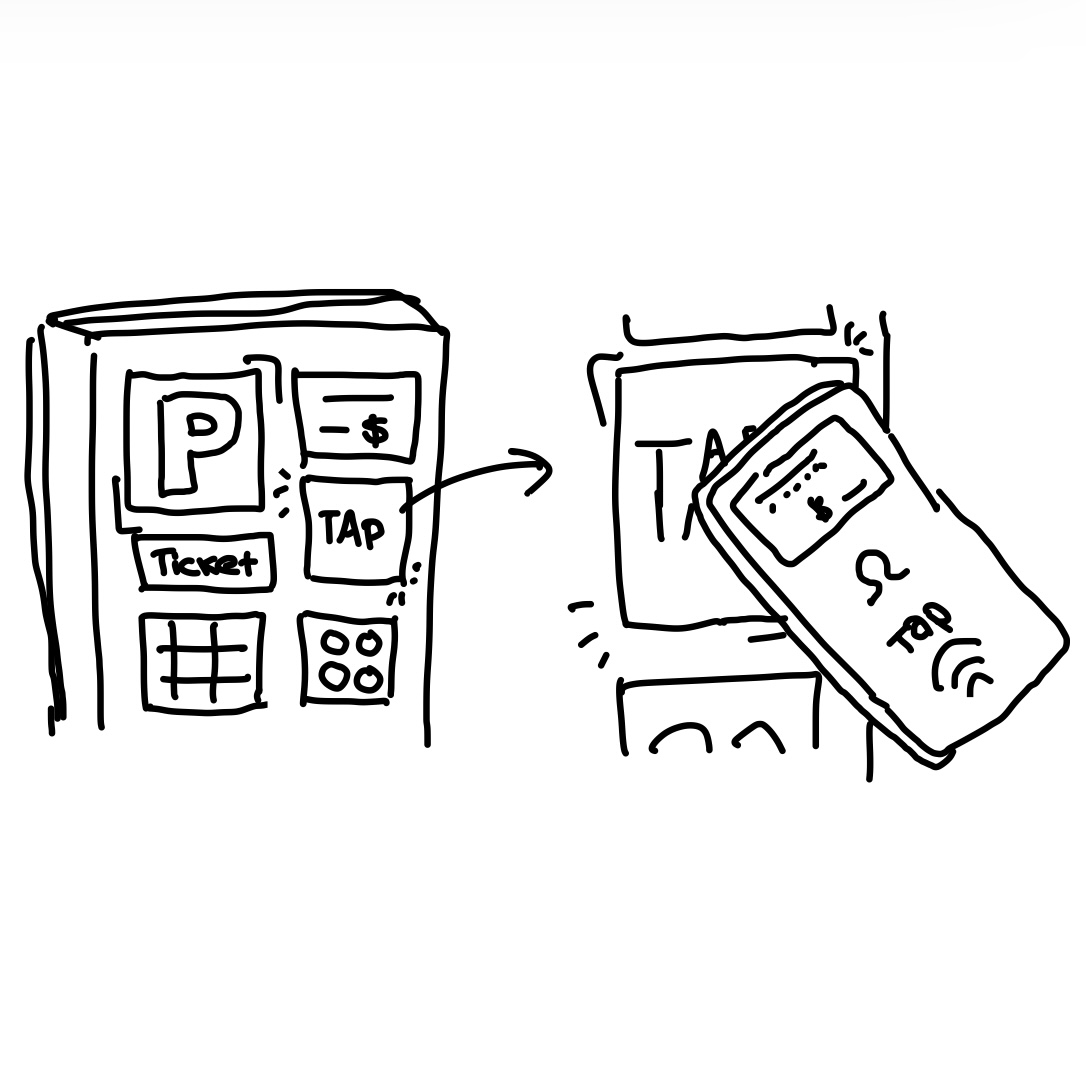 P
$
TAP
Ticket
TAP
$
TAP